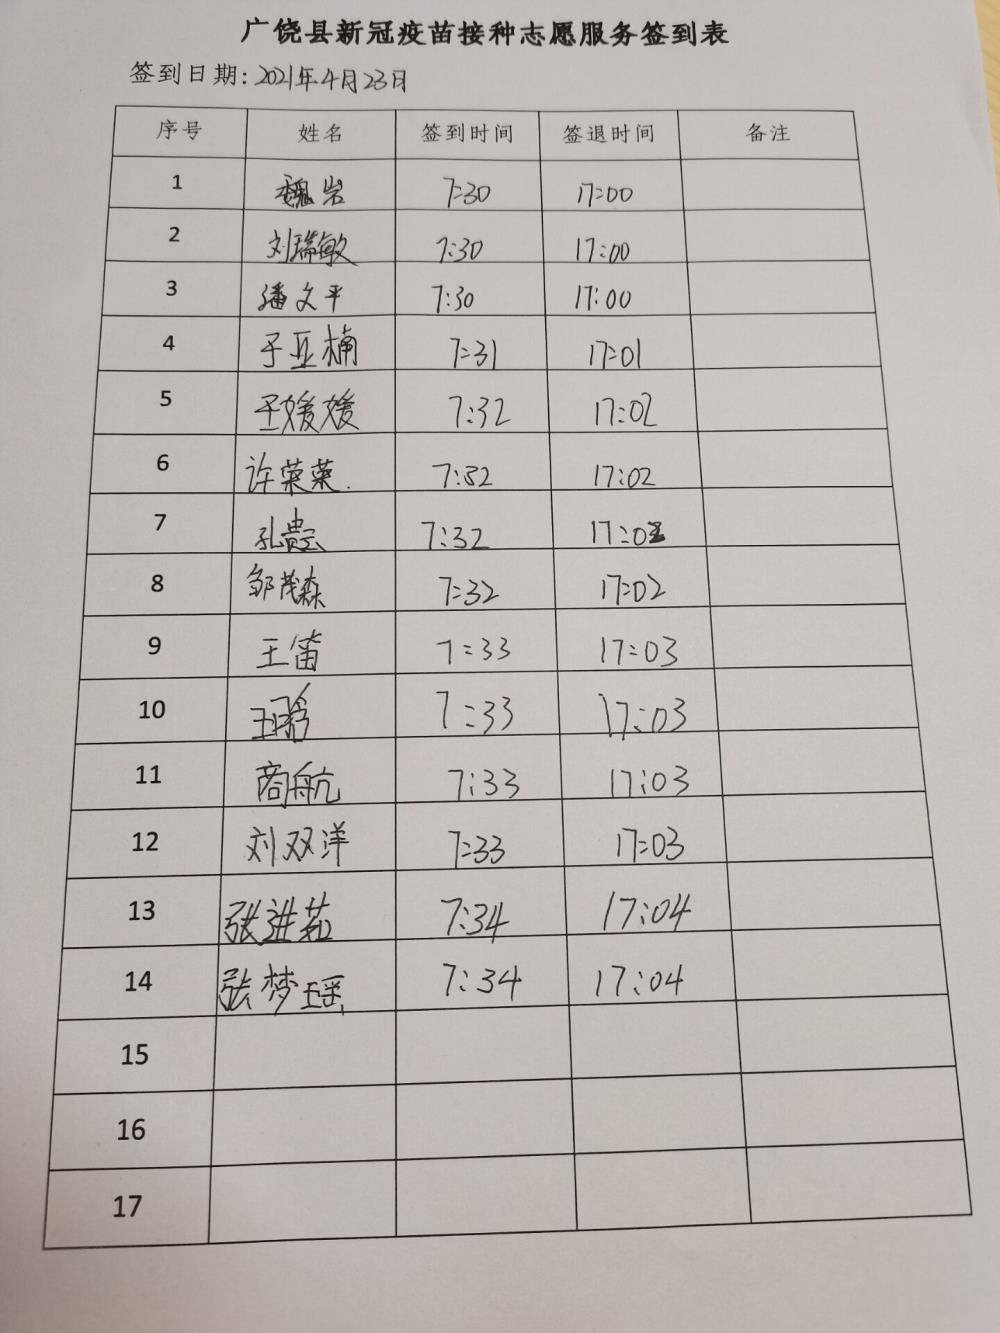 广饶县新冠疫苗接种志愿服务签到表
签到日期:2021年4月23日
序号 姓名 签到时间 签退时间 备注
1 魏岩 7:30 17:00
2 刘瑞敏 7:30 17:00
3 潘文平 7:30 17:00
4 于亚楠 7:31 17:01
5 王媛媛 7:32 17:02
6 许荣荣 7:32 17:02
7 孔贵云 7:32 17:02
8 邹茂森 7:32 17:02
9 王笛 7:33 17:03
10 7:33 17:03
11 商航 7:33 17:03
12 刘双洋 7:33 17:03
13 张进茹 7:34 17:04
14 张梦瑶 7:34 17:04
15
16
17